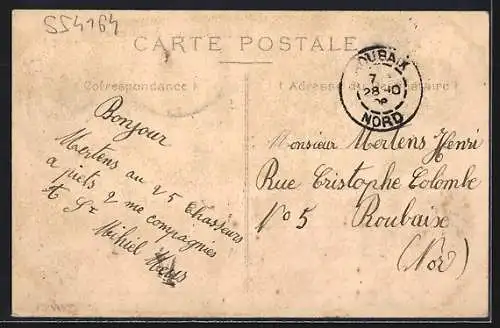 SS4164
CARTE POSTALE
Correspondance
Adresse du
ROUBAIX
7
28 - 10
08
NORD
Bonjour
Mertens au 25 Chasseurs
a piets 2 me compagnies
A St
Mihiel
Monsieur Mertens Henri
Rue Cristophe Colombe
No 5 Roubaix
(Nor)